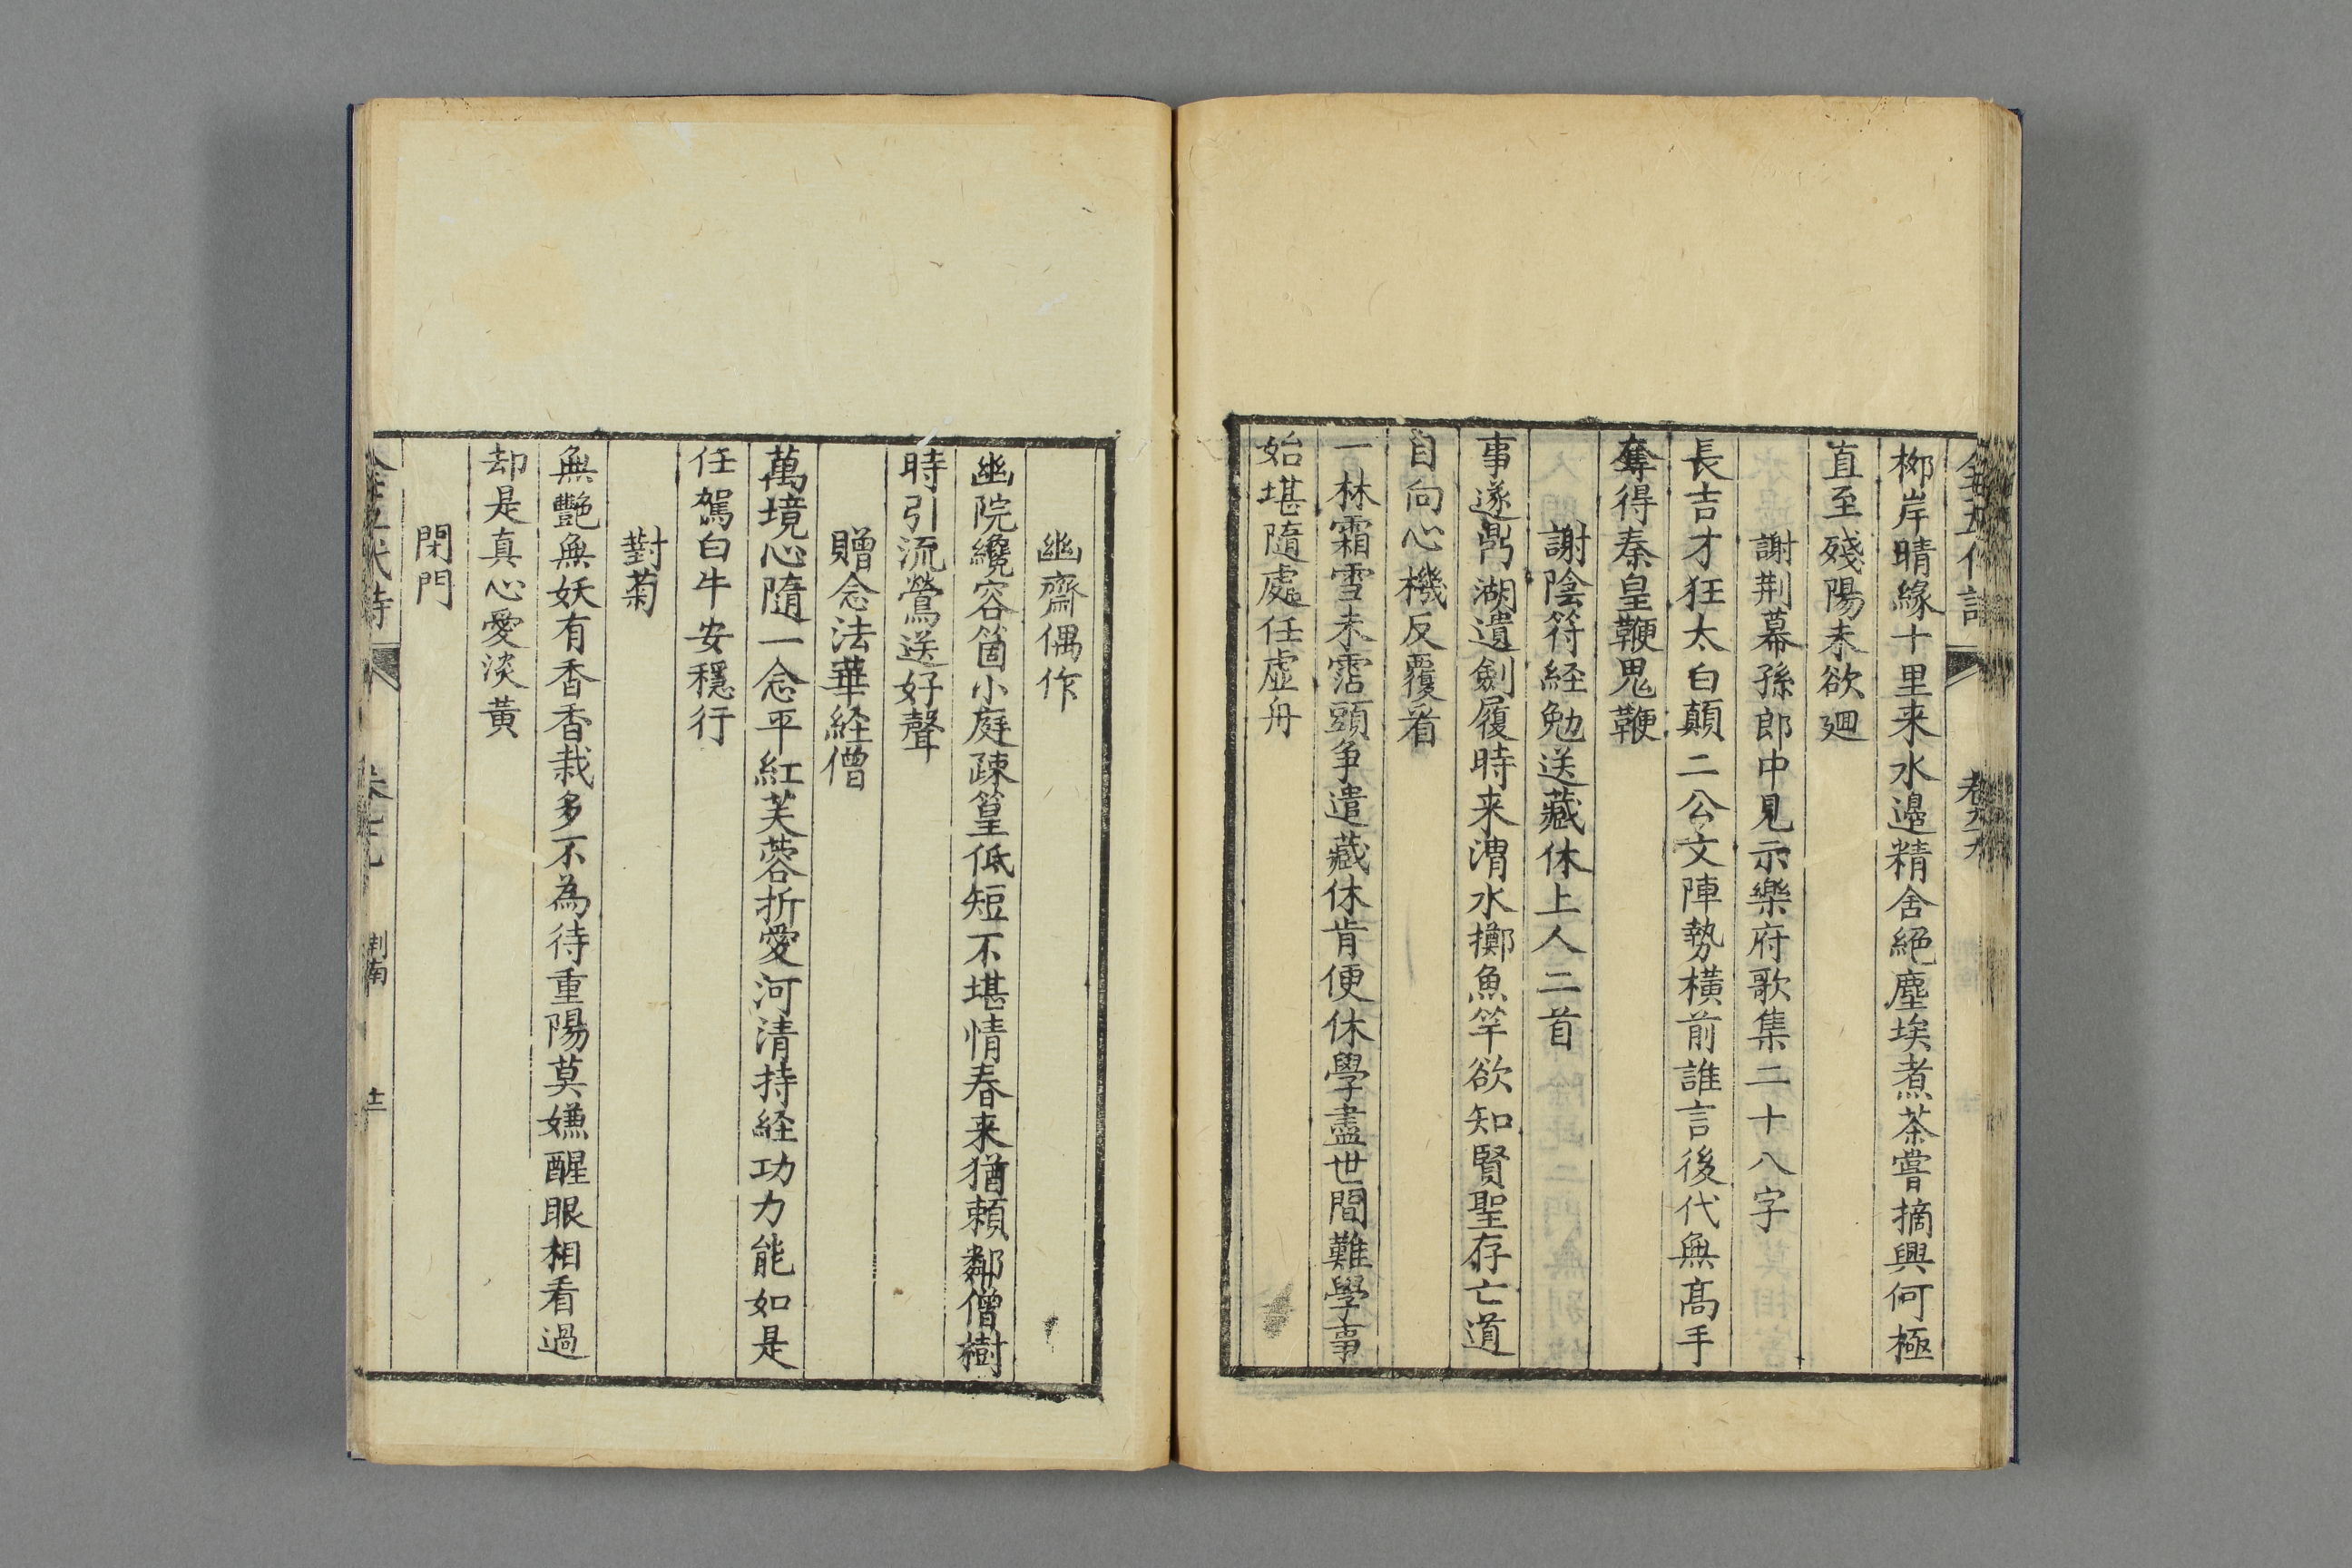 全五代詩 卷
栁岸晴緣十里来水邉精舍絕塵埃煮茶嘗摘興何極
直至殘陽未欲廻
謝荆幕孫郎中見示樂府歌集二十八字
長吉才狂太白顛二公文陣勢橫前誰言後代無髙手
奪得秦皇鞭鬼鞭
謝陰符経勉送藏休上人二首
事遂鼎湖遺劍履時来渭水擲魚竿欲知賢聖存亡道
自向心機反覆看
一林霜雪未霑頭争遣藏休肯便休學盡世間難學事
始堪隨處任虛舟
幽齋偶作
幽院纔容箇小庭疎篁低短不堪情春来猶賴鄰僧樹
時引流鶯送好聲
贈念法華経僧
萬境心隨一念平紅芙蓉折愛河清持経功力能如是
任駕白牛安穩行
對菊
無艷無妖有香香栽多不為待重陽莫嫌醒眼相看過
却是真心愛淡黄
閉門
全五代詩 荆南 十二